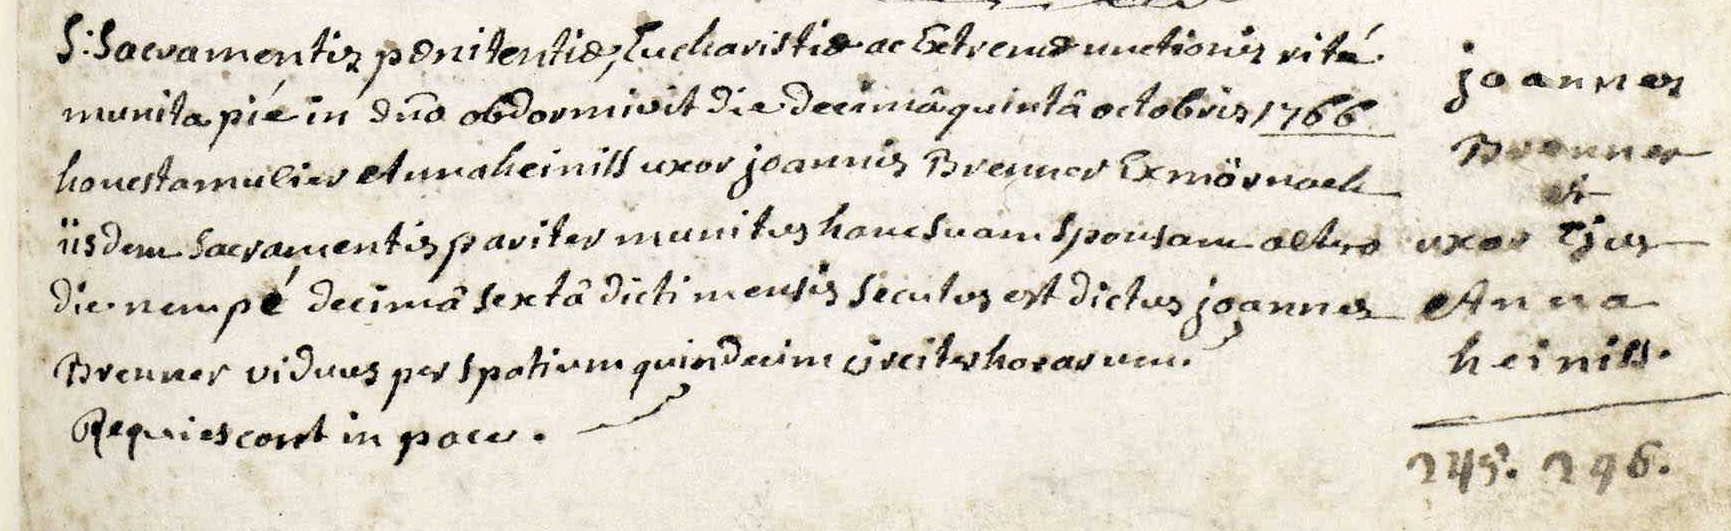 S: Sacramentis pœnitentiæ, Eucharistiæ ac Extremæ unctionis rité
munita pié in dño obdormivit die decimâ quintâ octobris 1766
honesta mulier Anna heiniss uxor joannis Brenner Ex mörnach
iisdem sacramentis pariter munitus hanc suam sponsam altero
die nempé decimâ sextâ dicti mensis secutus est dictus joannes
Brenner viduus per spatium quindecim circiter horarum.
Requiescant in pace.
joannes
Brenner
et
uxor Ejus
Anna
heiniss.
245. 246.